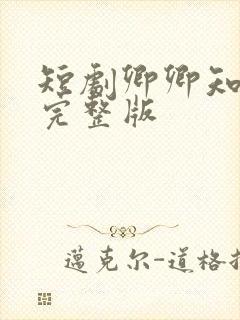 短剧卿卿知
完整版
邁克尔-道格拉